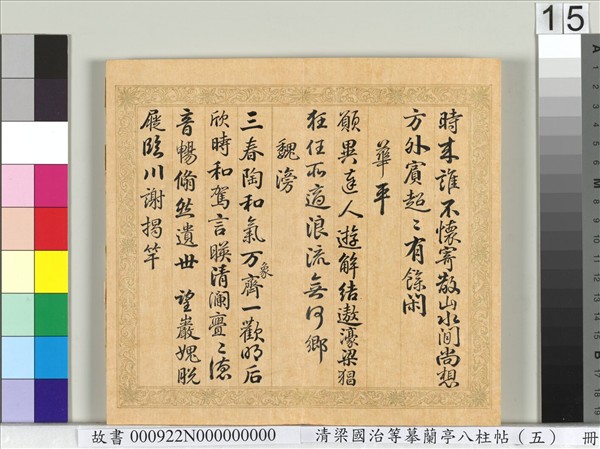 時來誰不懷寄散山水間尚想
方外賓超〻有餘閑
華平
願與達人遊解結遨濠梁猖
狂任所適浪流無何鄉
魏滂
三春陶和氣万象齊一歡明后
欣時和駕言暎清瀾亹〻德
音暢翛然遺世 望巖愧脱
屣臨川謝揭竿
15
故書 000922N000000000 清梁國治等摹蘭亭八柱帖（五） 冊